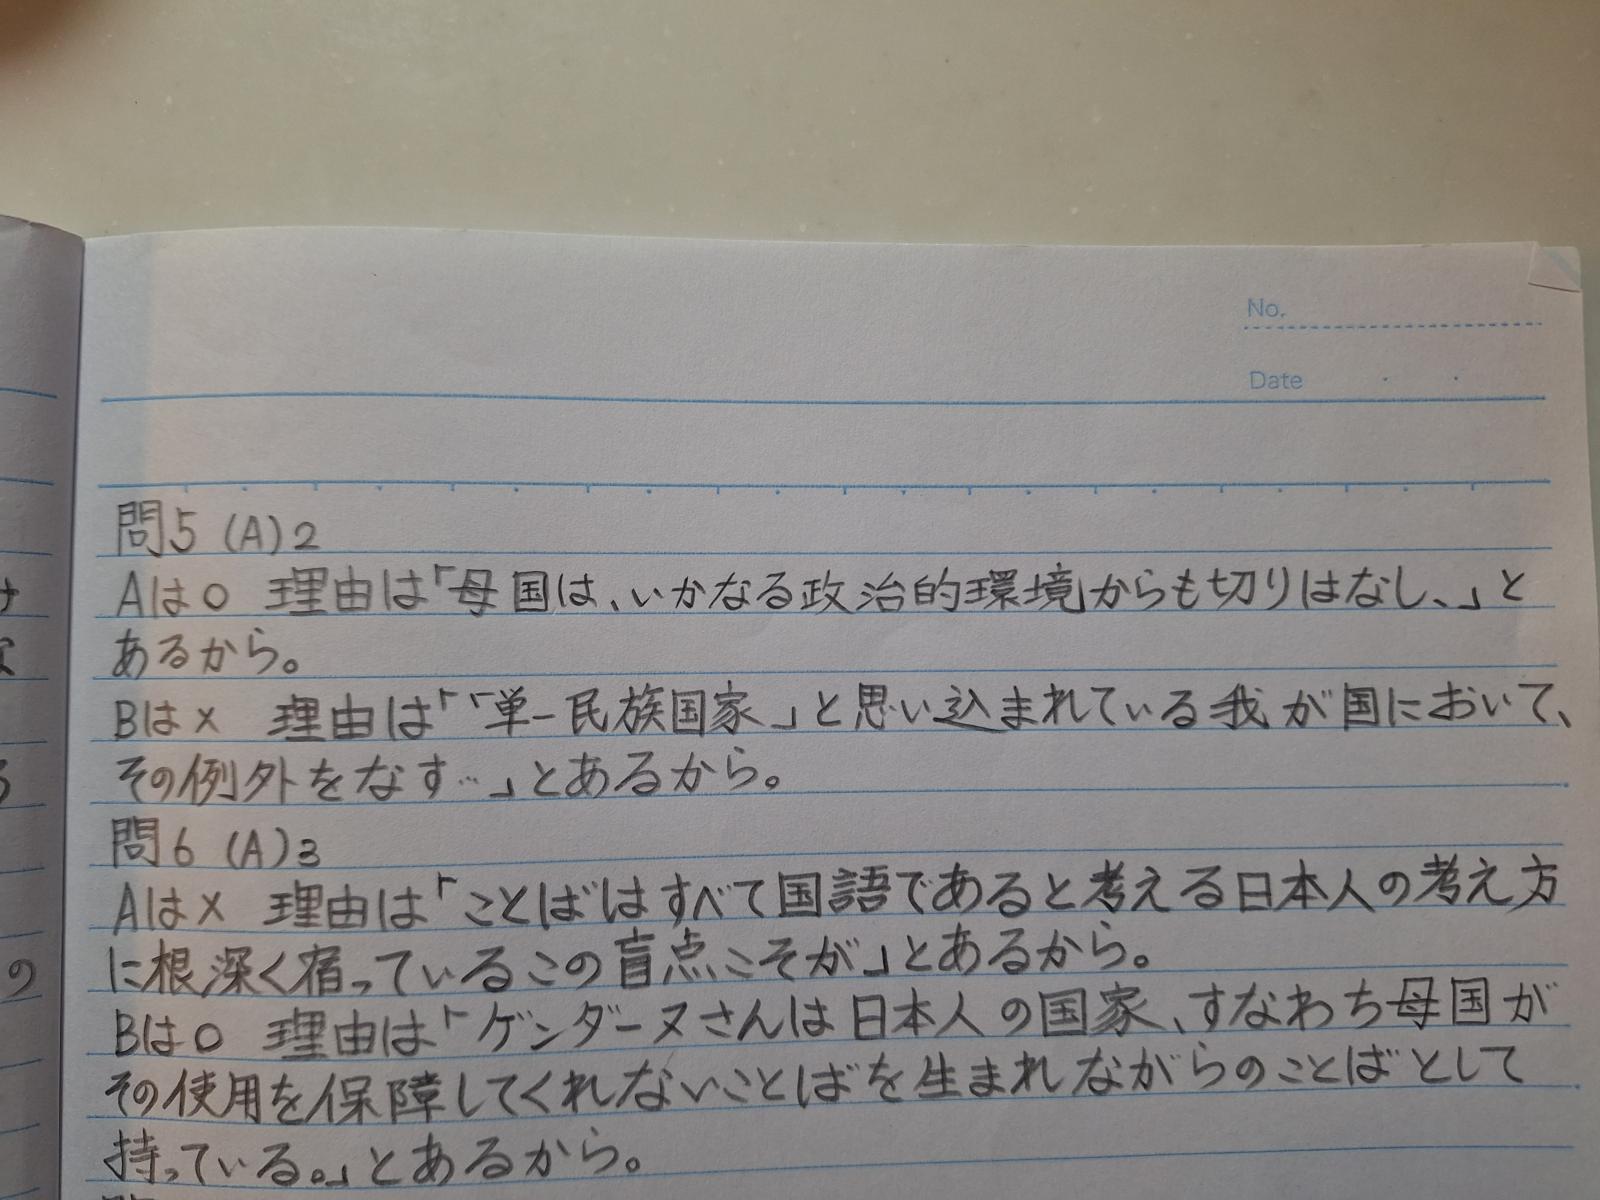 No.
Date
問5 (A)2
Aは○ 理由は「母国は、いかなる政治的環境からも切りはなし、」と
あるから。
Bは× 理由は「「単一民族国家」と思い込まれている我が国において、
その例外をなす…」とあるから。
問6 (A)3
Aは× 理由は「ことばはすべて国語であると考える日本人の考え方
に根深く宿っているこの盲点こそが」とあるから。
Bは○ 理由は「ゲンダーヌさんは日本人の国家、すなわち母国が
その使用を保障してくれないことばを生まれながらのことばとして
持っている。」とあるから。